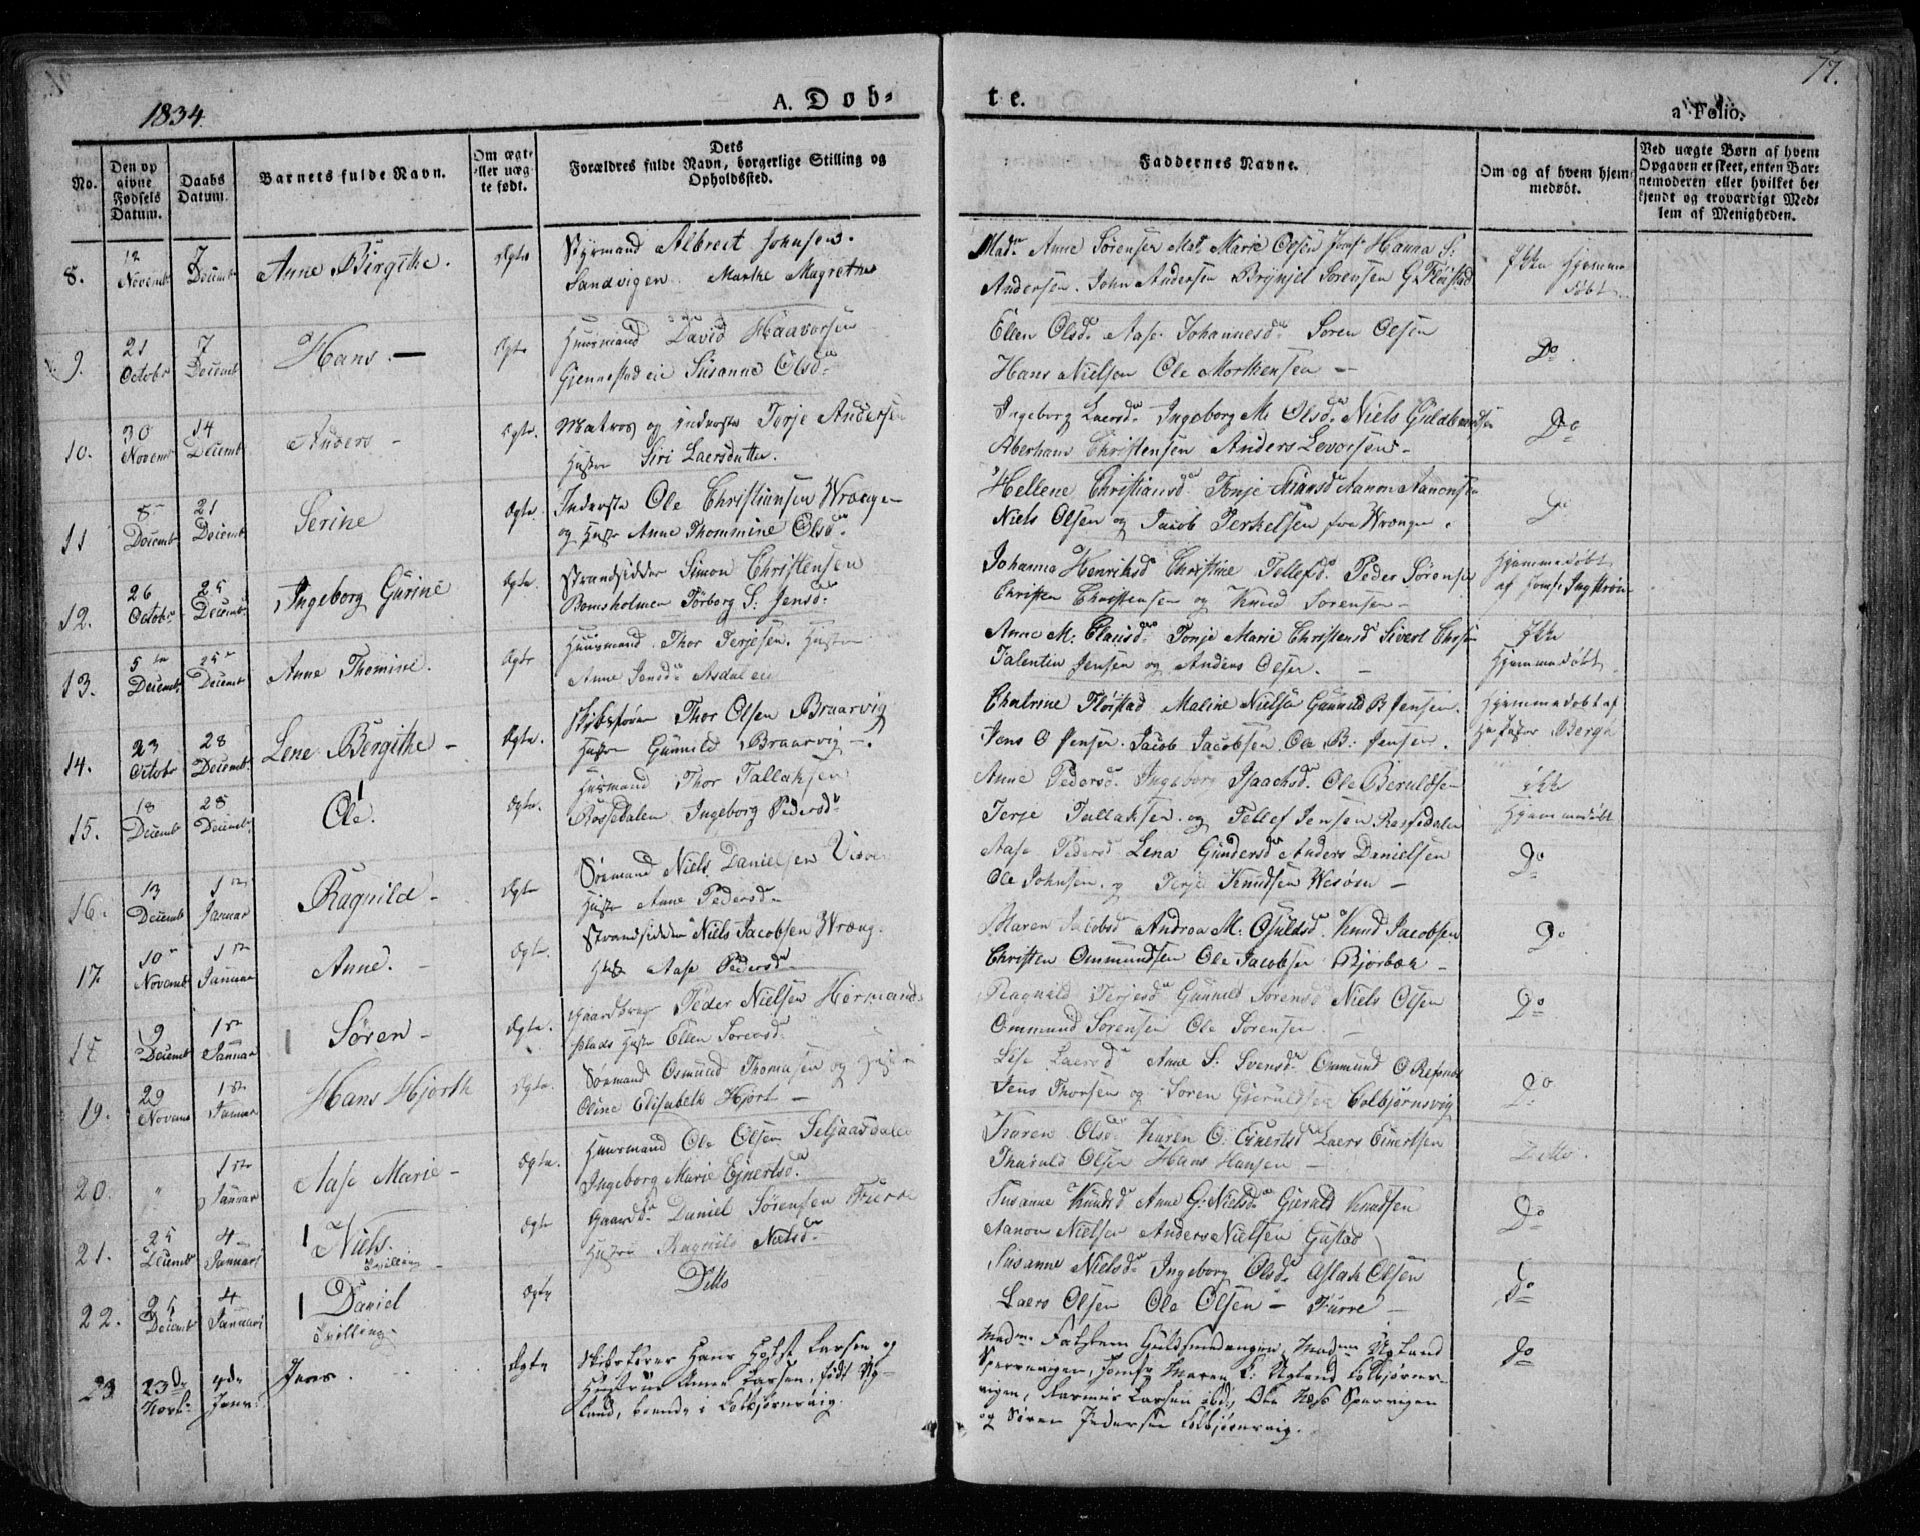 77.
1834
A. Døb-
te.
a Folio.
No.
Den op
givne
Fødsels
Datum.
Daabs
Datum.
Barnets fulde Navn.
Om ægte
eller uæg-
te født.
Dets
Forældres fulde Navn, borgerlige Stilling og
Opholdssted.
Faddernes Navne.
Om og af hvem hjem-
medøbt.
Ved uægte Børn af hvem
Opgaven er skeet, enten Bar-
nemoderen eller hvilket be-
kjendt og troværdigt Med-
lem af Menigheden.
8.
12
Novemb
7
Decemb
Anne Birgithe.
Ægte
Styrmand Albreit Johnsen.
Sandvigen. Marthe Magrethe
Mad. Anne Sørensen Mad. Marie Olsen Jomf. Hanna S:
Andersen. John Andersen Brynjel Sørensen G. Fløistad
Ikke Hjemme
døbt
9.
21
Octobr
7
Decemb
Hans. —
Ægte
Huusmand David Haavorsen
Gjennestad eie Susanne Olsd.
Ellen Olsd. Aase Johannesd. Søren Olsen
Hans Nielsen Ole Morthensen —
Do.
10.
30
Novemb
14
Decemb
Anders -
Ægte.
Matros og inderste Terje Andersen
Hustr Siri Laersdatter.
Ingeborg Laersd. Ingeborg M. Olsd. Niels Guldbrandsen
Aberham Christensen Anders Levorsen -
Do
11
8
Decemb
21
Decemb
Serine
Ægte.
Inderste Ole Christiansen Wrænge-
og Hustr Anne Thommine Olsd.
Hellene Christiansd. Tonje Niansd Aanon Aanonsen
Niels Olsen og Jacob Terkelsen fra Wrængen.
Do
12.
26
Octobr
25
Decemb
Ingeborg Gurine
Ægte.
Strandsidder Simon Christensen
Bomsholmen Torborg S: Jensd.
Johanna Henriksd Christine Tellefd. Peder Sørensen
Christen Christensen og Knud Sørensen -
Hjemmedøbt
af Jomf. Ingstrøm
13.
5te
Decemb.
25
Decemb
Anne Thomine.
Ægte
Huusmand Thor Terjesen. Hustru
Anne Jensd. Asdal eie
Anne M: Clausd. Tonje Marie Christensd Sivert Chrsen
Talentin Jensen og Anders Olsen. -
Ikke
Hjemmedøbt
14.
23
Octobr
28
Decemb.
Lene Bergithe -
Ægte.
Skibsfører Thor Olsen Braarvig
Hustr Gunnild Braarvig -.
Chatrine Fløistad Maline Nielsen Gunnild B Jensen.
Jens O Jensen. Jacob Jacobsen Ole B: Jensen.
Hjemmedøbt af
Bergh
15.
18
Decemb
28
Decemb.
Ole.
Ægte.
Husmand Thor Tallaksen
Rossedalen Ingeborg Pedersd.
Anne Pedersd. Ingeborg Isaachsd. Ole Beruldsen
Terje Tallaksen. og Tellef Jensen Rossedalen
ikke
Hjemmedøbt
16.
13
Decemb
1ste
Januar
Ragnild -
Ægte
Sømand Niels Danielsen
Hustr Anne Pedersd.
Aase Pedersd Lena Gundersd Anders Danielsen
Ole Johnsen. og Terje Knudsen Wesøen -
Do
17.
10
Novemb
1ste
Januar
Anne. -
Ægte.
Strandsidder Niels Jacobsen Wræng-
Hustr Aase Pedersd.
Maren Jacobsd Andrea M: Osuldsd. Knud Jacobsen
Christen Ommundsen Ole Jacobsen Bjorbæk -
Do
18
9
Decemb
1ste
Januar
Søren -
Ægte.
Gaardbrug Peder Nielsen Hermands-
plads Hustr Ellen Sørensd.
Ragnild Terjesd Gunnild Sørensd Niels Olsen
Ommund Sørensen Ole Sørensen.
Do
19.
29
Novemb
1ste
Januar
Hans Hjorth
Ægte.
Sømand Osmund Thomasen og Hustru
Oline Elisabeth Hjort -
Lise Laersd Anne S: Svensd. Ommund O Refsnes
Jens Thorsen og Søren Gieruldsen Colbjørnsvig
Do
20.
"
1ste
Januar
Aase Marie -
Ægte.
Huusmand Ole Olsen Seljaasdalen
Ingeborg Marie Ejnertsd.
Karen Olsd. Karen O: Einertsd Laers Einertsen
Tharald Olsen Hans Hansen -
Ditto.
21.
25
Decemb
4
Januari
Niels.
Tvilling
Ægte
Gaardb. Daniel Sørensen Furre
Hustru Ragnild Nielsd.
Susanne Knudsd Anne G. Nielsd. Gierald Knudsen
Aanon Nielsen Anders Nielsen Gustad
Do
22.
25
Decemb
4
Januari
Daniel
Tvilling
Ægte
Ditto
Susanne Nielsd. Ingeborg Olsd. Aslak Olsen
Laers Olsen Ole Olsen - Furre -
Do
23
23de
Novb.
4de
Janr.
Jens.
Ægte
Skibsfører Hans Holst Larsen og
Hustrue Anne Larsen, født Ug-
land, boende i Colbjørnsvig.
Madm. Guldsmedengen, Madm. Ugland
Spervevigen, Jomfr Maren E. Ugland Colbjørns-
vigen, Larsen ibd., Ole Næss Spervigen
og Søren Pedersen Colbjørnsvig.
Do